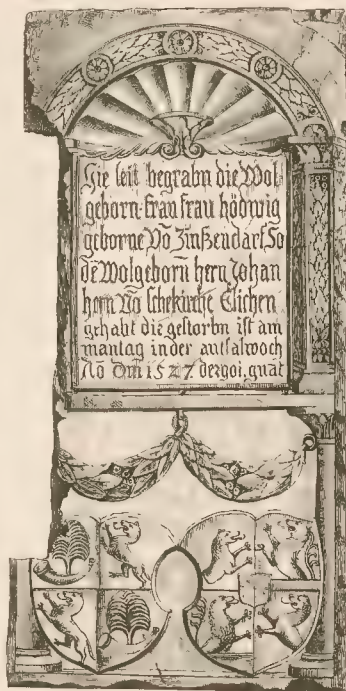 Hie leit begrabn die Wol
geborn frau frau hödwig
geborne Võ Zinßendarf So
dẽ Wolgeborñ hern Johan
hern Võ schekirchẽ Elichen
gehabt die gestorbn ist am
mantag in der antlaswoch
Ño Dm̃ 1527 der goĩ gnat